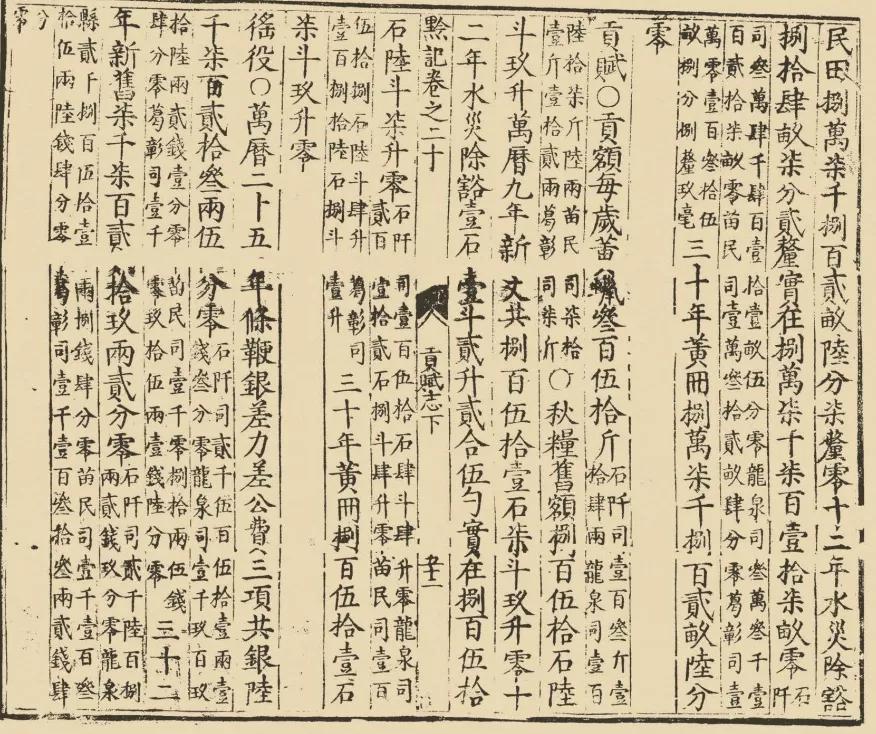 民田捌萬柒千捌百貳畝陸分柒釐零十二年水災除豁
捌拾肆畝柒分貳釐實在捌萬柒千柒百壹拾柒畝零石阡
司叄萬肆千肆百壹拾壹畝伍分零龍泉司叄萬叄千壹
百貳拾柒畝零苗民司壹萬叄拾貳畝肆分零葛彰司壹
萬零壹百叄拾伍畝捌分捌釐玖毫三十年黃冊捌萬柒千捌百貳畝陸分
零
貢賦○貢額每歲黃蠟叄百伍拾斤石阡司壹百叄斤壹拾肆兩龍泉司壹百
陸拾柒斤陸兩苗民司柒拾壹斤壹拾貳兩葛彰司柒斤○秋糧舊額捌百伍拾石陸
斗玖升萬曆九年新丈共捌百伍拾壹石柒斗玖升零十
二年水災除豁壹石壹斗貳升貳合伍勺實在捌百伍拾
黔記卷之二十 貢賦志下
石陸斗柒升零石阡司壹百伍拾石肆斗肆升零龍泉司貳百壹拾貳石捌斗肆升零苗民司壹百
伍拾捌石陸斗肆升葛彰司壹百捌拾陸石捌斗壹升三十年黃冊捌百伍拾壹石
柒斗玖升零
徭役○萬曆二十五年條鞭銀差力差公費三項共銀陸
千柒百貳拾叄兩伍分零石阡司貳千伍百伍拾壹兩壹錢叄分零龍泉司壹千玖百玖
拾陸兩貳錢壹分零苗民司壹千零捌拾兩伍錢肆分零葛彰司壹千零玖拾伍兩壹錢陸分零三十二
年新舊柒千柒百貳拾玖兩貳分零石阡司貳千陸百捌兩貳錢玖分零龍泉
縣貳千捌百伍拾壹兩捌錢肆分零苗民司壹千壹百叄
拾伍兩陸錢肆分零葛彰司壹千壹百叄拾叄兩貳錢肆
分零